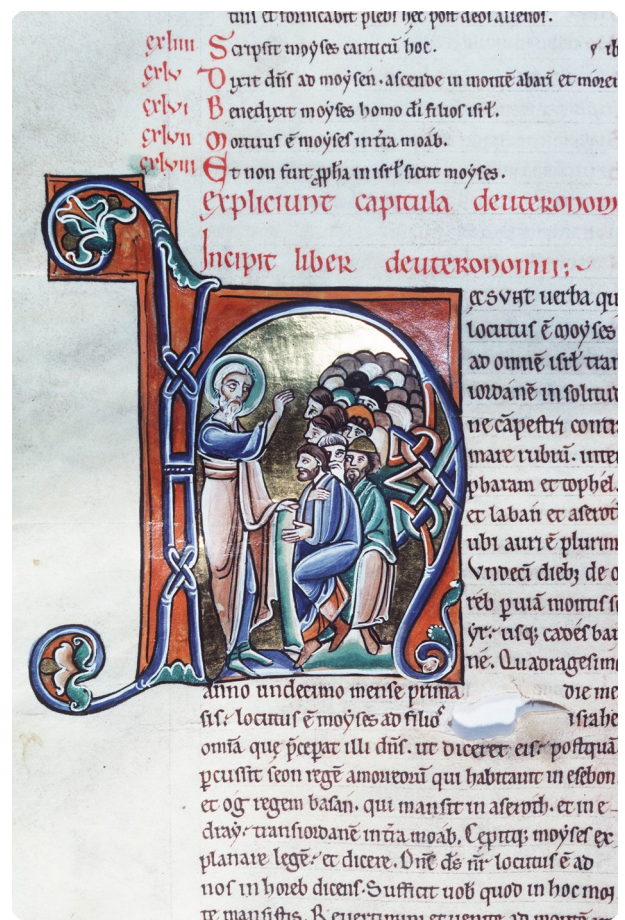 tur et fornicabit plebs hec post deos alienos.
cxliiii Scripsit moyses canticū hoc.
cxlv Dixit dn̄s ad moysen. ascende in montē abarī et morei
cxlvi Benedixit moyses homo dī filios isrl̄.
cxlvii Mortuus ē moyses in tr̄a moab.
cxlviii Et non fuit ꝓpha in isrl̄ sicut moyses.
expliciunt capitula deuteronom
Incipit liber deuteronomii;
H
ec sunt verba qu
locutus ē moyses
ad omnē isrl̄ tran
iordanē in solitud
ne cāpestri contr
mare rubrū. inter
pharam et tophel.
et laban et aserot
ubi auri ē plurim
Vndecī dieb; de o
reb p uiā montis se
yr. usq; cades bar
ne. Quadragesimo
anno undecimo mense prima die me
sis. locutus ē moyses ad filios israhe
omīa que p̄cepat illi dn̄s. ut diceret eis. postquā
pcussit seon regē amorreorū qui habitauit in esebon
et og regem basan. qui mansit in aseroth. et in e
dray. trans iordanē in tr̄a moab. Cepitq; moyses ex
planare legē. et dicere. Dn̄s ds̄ nr̄ locutus ē ad
nos in horeb dicens. Sufficit uob̄ quod in hoc mon
te mansistis. Reuertimini et uenite ad montē